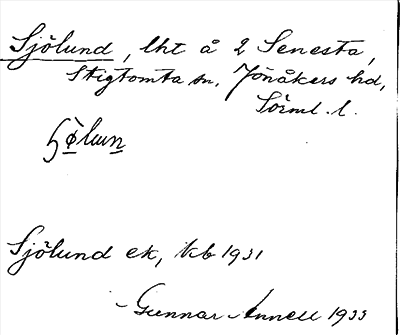 Sjölund, lht å 2 Senesta,
Stigtomta sn, Jönåkers hd,
Sörml. l.
ɧø̀lun
Sjölund ek, kb 1931
Gunnar Annell 1933